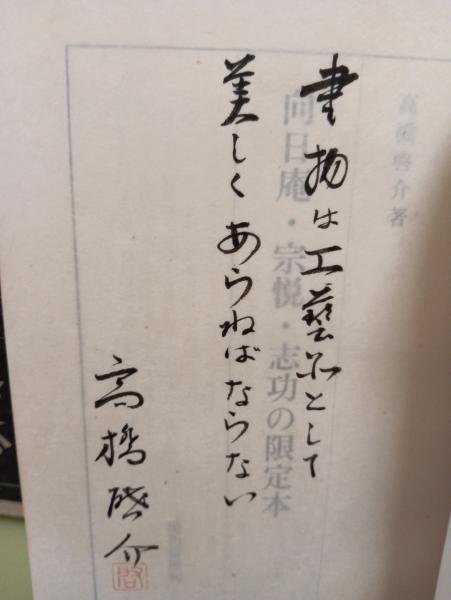 書物は工藝品として
美しくあらねばならない
高橋啓介
啓
高橋啓介著
向日庵・宗悦・志功の限定本